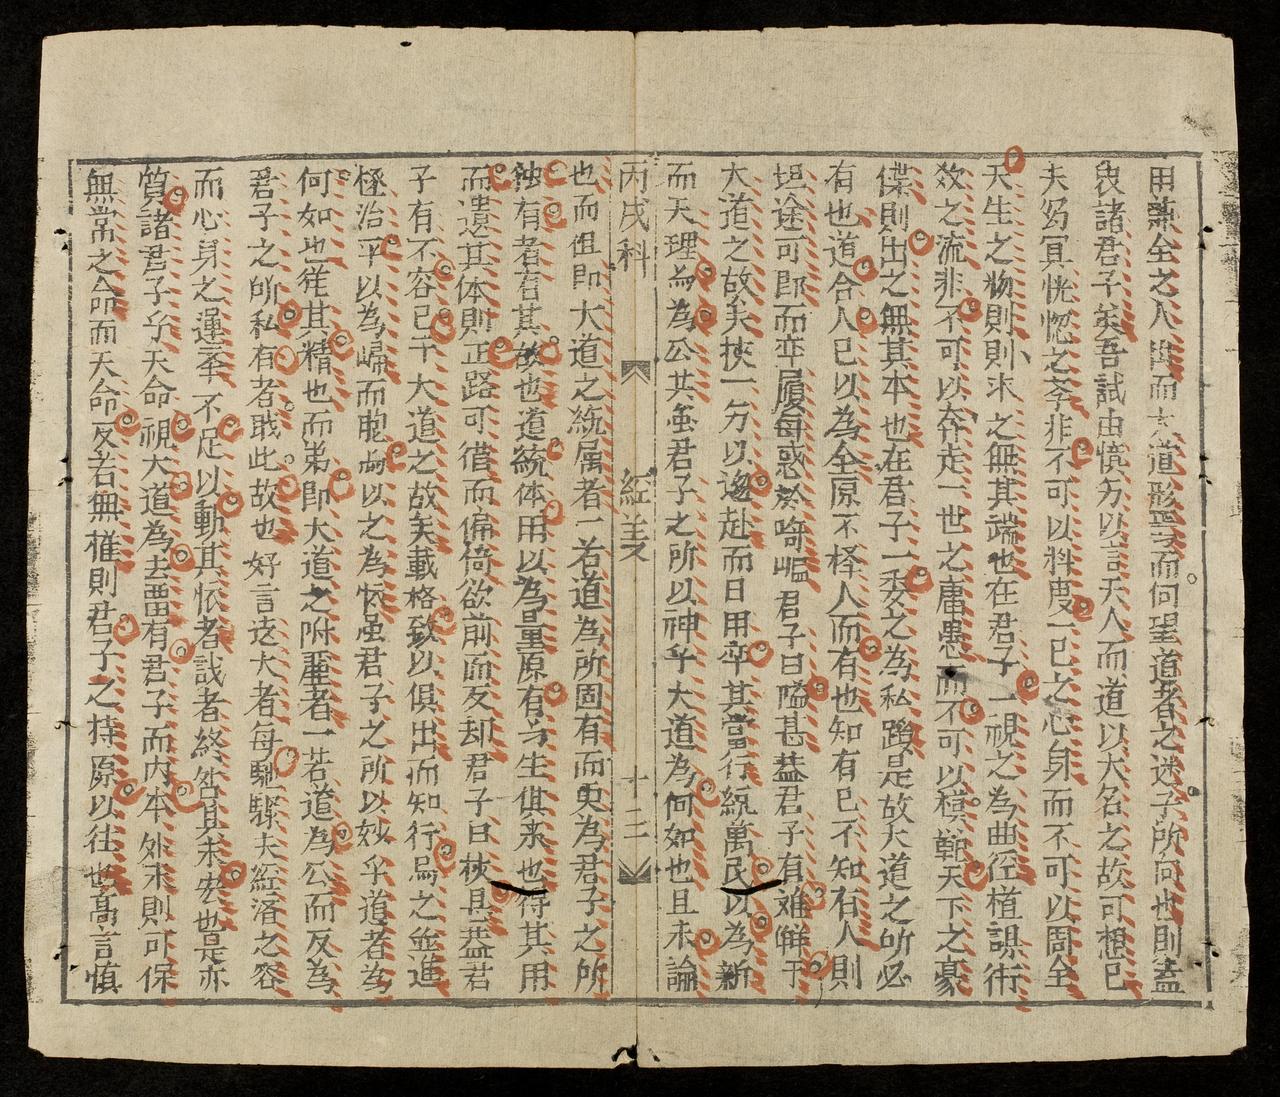 用兼全之人與而大道形焉而何望道者之迷子所向也則盍
內諸君子矣吾試由慎勿以言天人而道以大名之故可想已
夫芻冥恍惚之李非不可以料度一己之心身而不可以周全
天生之物則則求之無其端也在君子一視之為曲徑植謨術
效之流非不可以奔走一世之庸愚而不可以模範天下之豪
傑則出之無其本也在君子一委之為私蹊是故大道之所必
有也道合人己以為全原不择人而有也知有己不知有人則
坦途可即而亦履每惑於崎嶇君子曰隘甚益君子有难觧于
大道之故矣夫挾一方以邀赴而日用率其當行統萬民以為新
而天理為為公共盖君子之所以神乎大道為何如也且未論
丙戌科 經義 十三
也而徂即大道之統属者一若道為所固有而更為君子之所
独有者言其故也道統体用以為量原有方生俱来也得其用
而遺其体則正路可借而偏倚欲前而反却君子曰狹甚益君
子有不容已于大道之故矣載格致以俱出而知行為之並進
極治平以為歸而胞與以之為懷盖君子之所以妙乎道者為
何如也徒其精也而弟即大道之附麗者一若道為公而反為
君子之所私有者哉此故也好言远大者每馳驟夫經濟之容
而心身之運率不足以動其依者哉者終咎其未安也是亦
質諸君子乎天命視大道為去畱有君子而内本外末則可保
無常之命而天命反若無權則君子之持原以往也高言慎